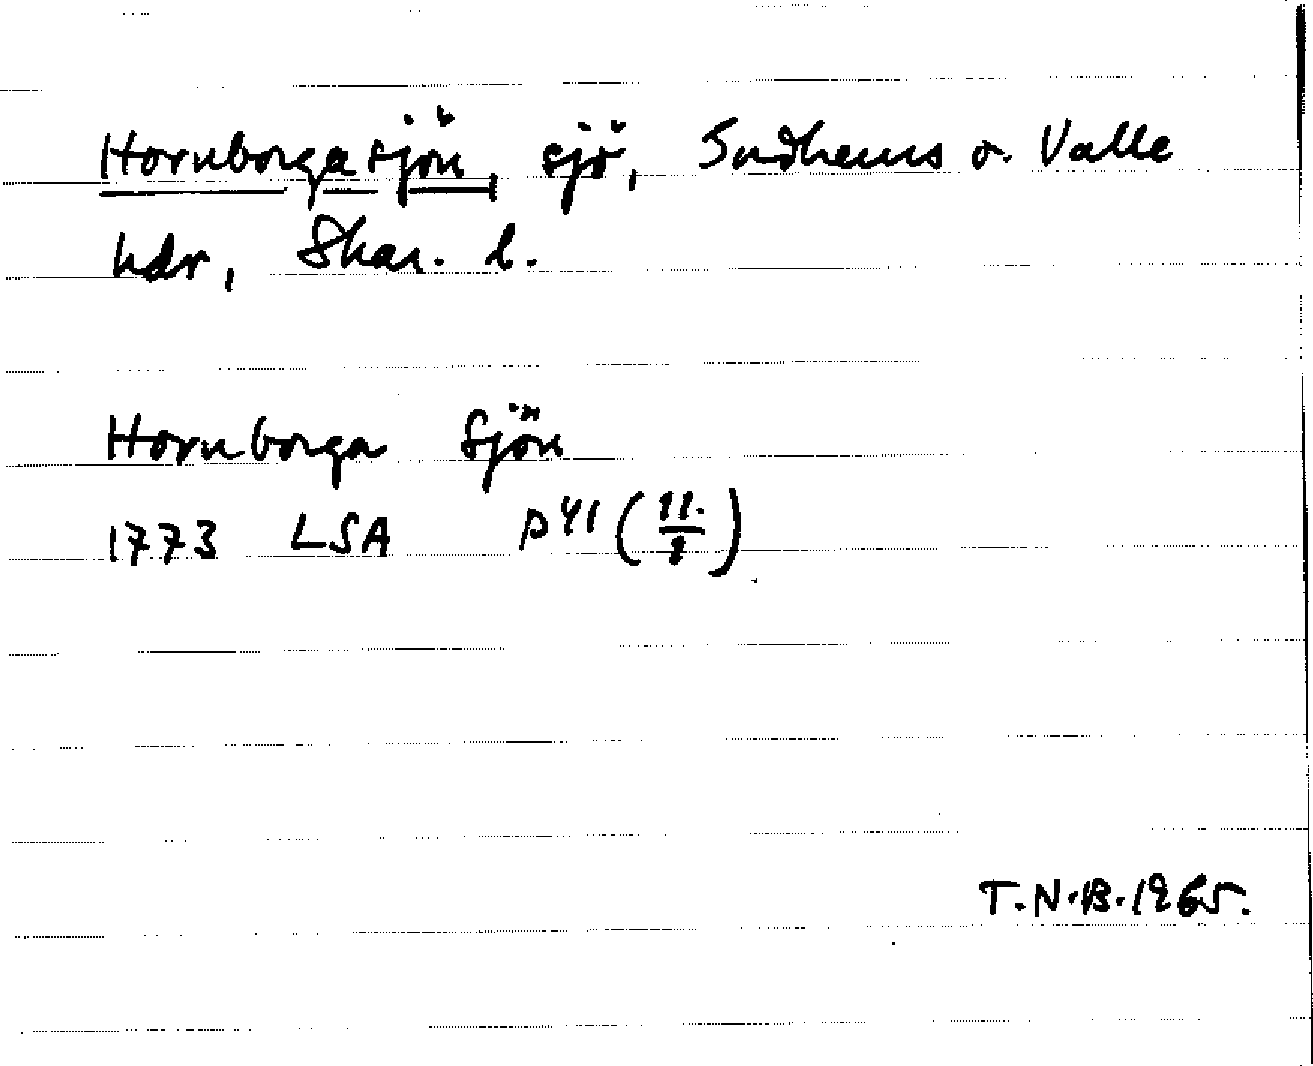 Hornborgasjön, sjö, Gudhems o. Valle
hdr, Skar. l.
Hornborga Sjön
1773 LSA P41 (11./1)
T.N.B. 1965.